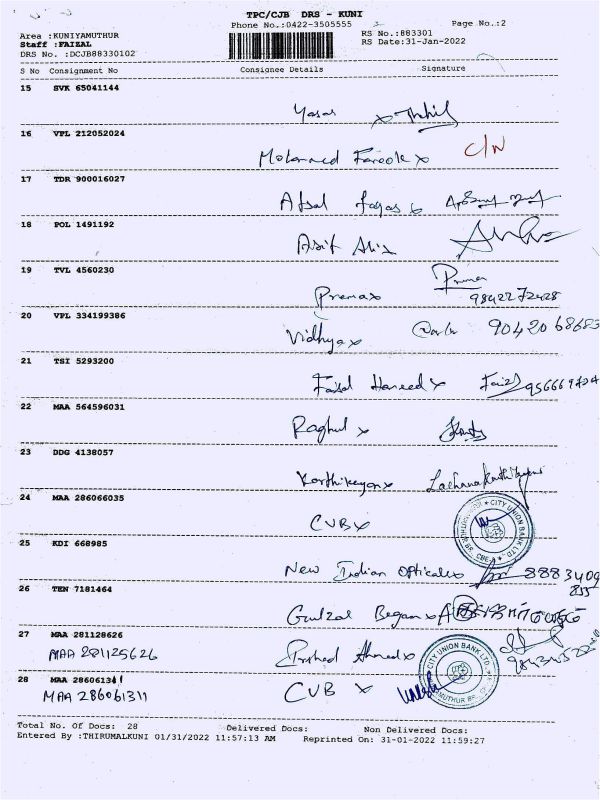 TPC/CJB DRS - KUNI
Phone No.:0422-3505555
Page No.:2
Area :KUNIYAMUTHUR
RS No.:883301
Staff :FAIZAL
RS Date:31-Jan-2022
DRS No. :DCJB88330102
S No Consignment No Consignee Details Signature
15 SVK 65041144
Yasar x
16 VPL 212052024
Mohammed Farook x C/N
17 TDR 900016027
Afsal
18 POL 1491192
Asif Ali x
19 TVL 4560230
Prema x Prema
9842272428
20 VPL 334199386
Vidhya x 9042068683
21 TSI 5293200
Faisal Hameed x Faizl
22 MAA 564596031
Raghul x
23 DDG 4138057
Karthikeyan x
24 MAA 286066035
CUB x
CITY UNION BANK LTD
25 KDI 668985
New Indian Opticals x 8883409
26 TEN 7181464
Gulzal Began x
27 MAA 281128626
MAA 281125626 Irshed Ahmed x
28 MAA 28606134
MAA 286061311 CUB x
CITY UNION BANK LTD.
Total No. Of Docs: 28 Delivered Docs: Non Delivered Docs:
Entered By :THIRUMALKUNI 01/31/2022 11:57:13 AM Reprinted On: 31-01-2022 11:59:27